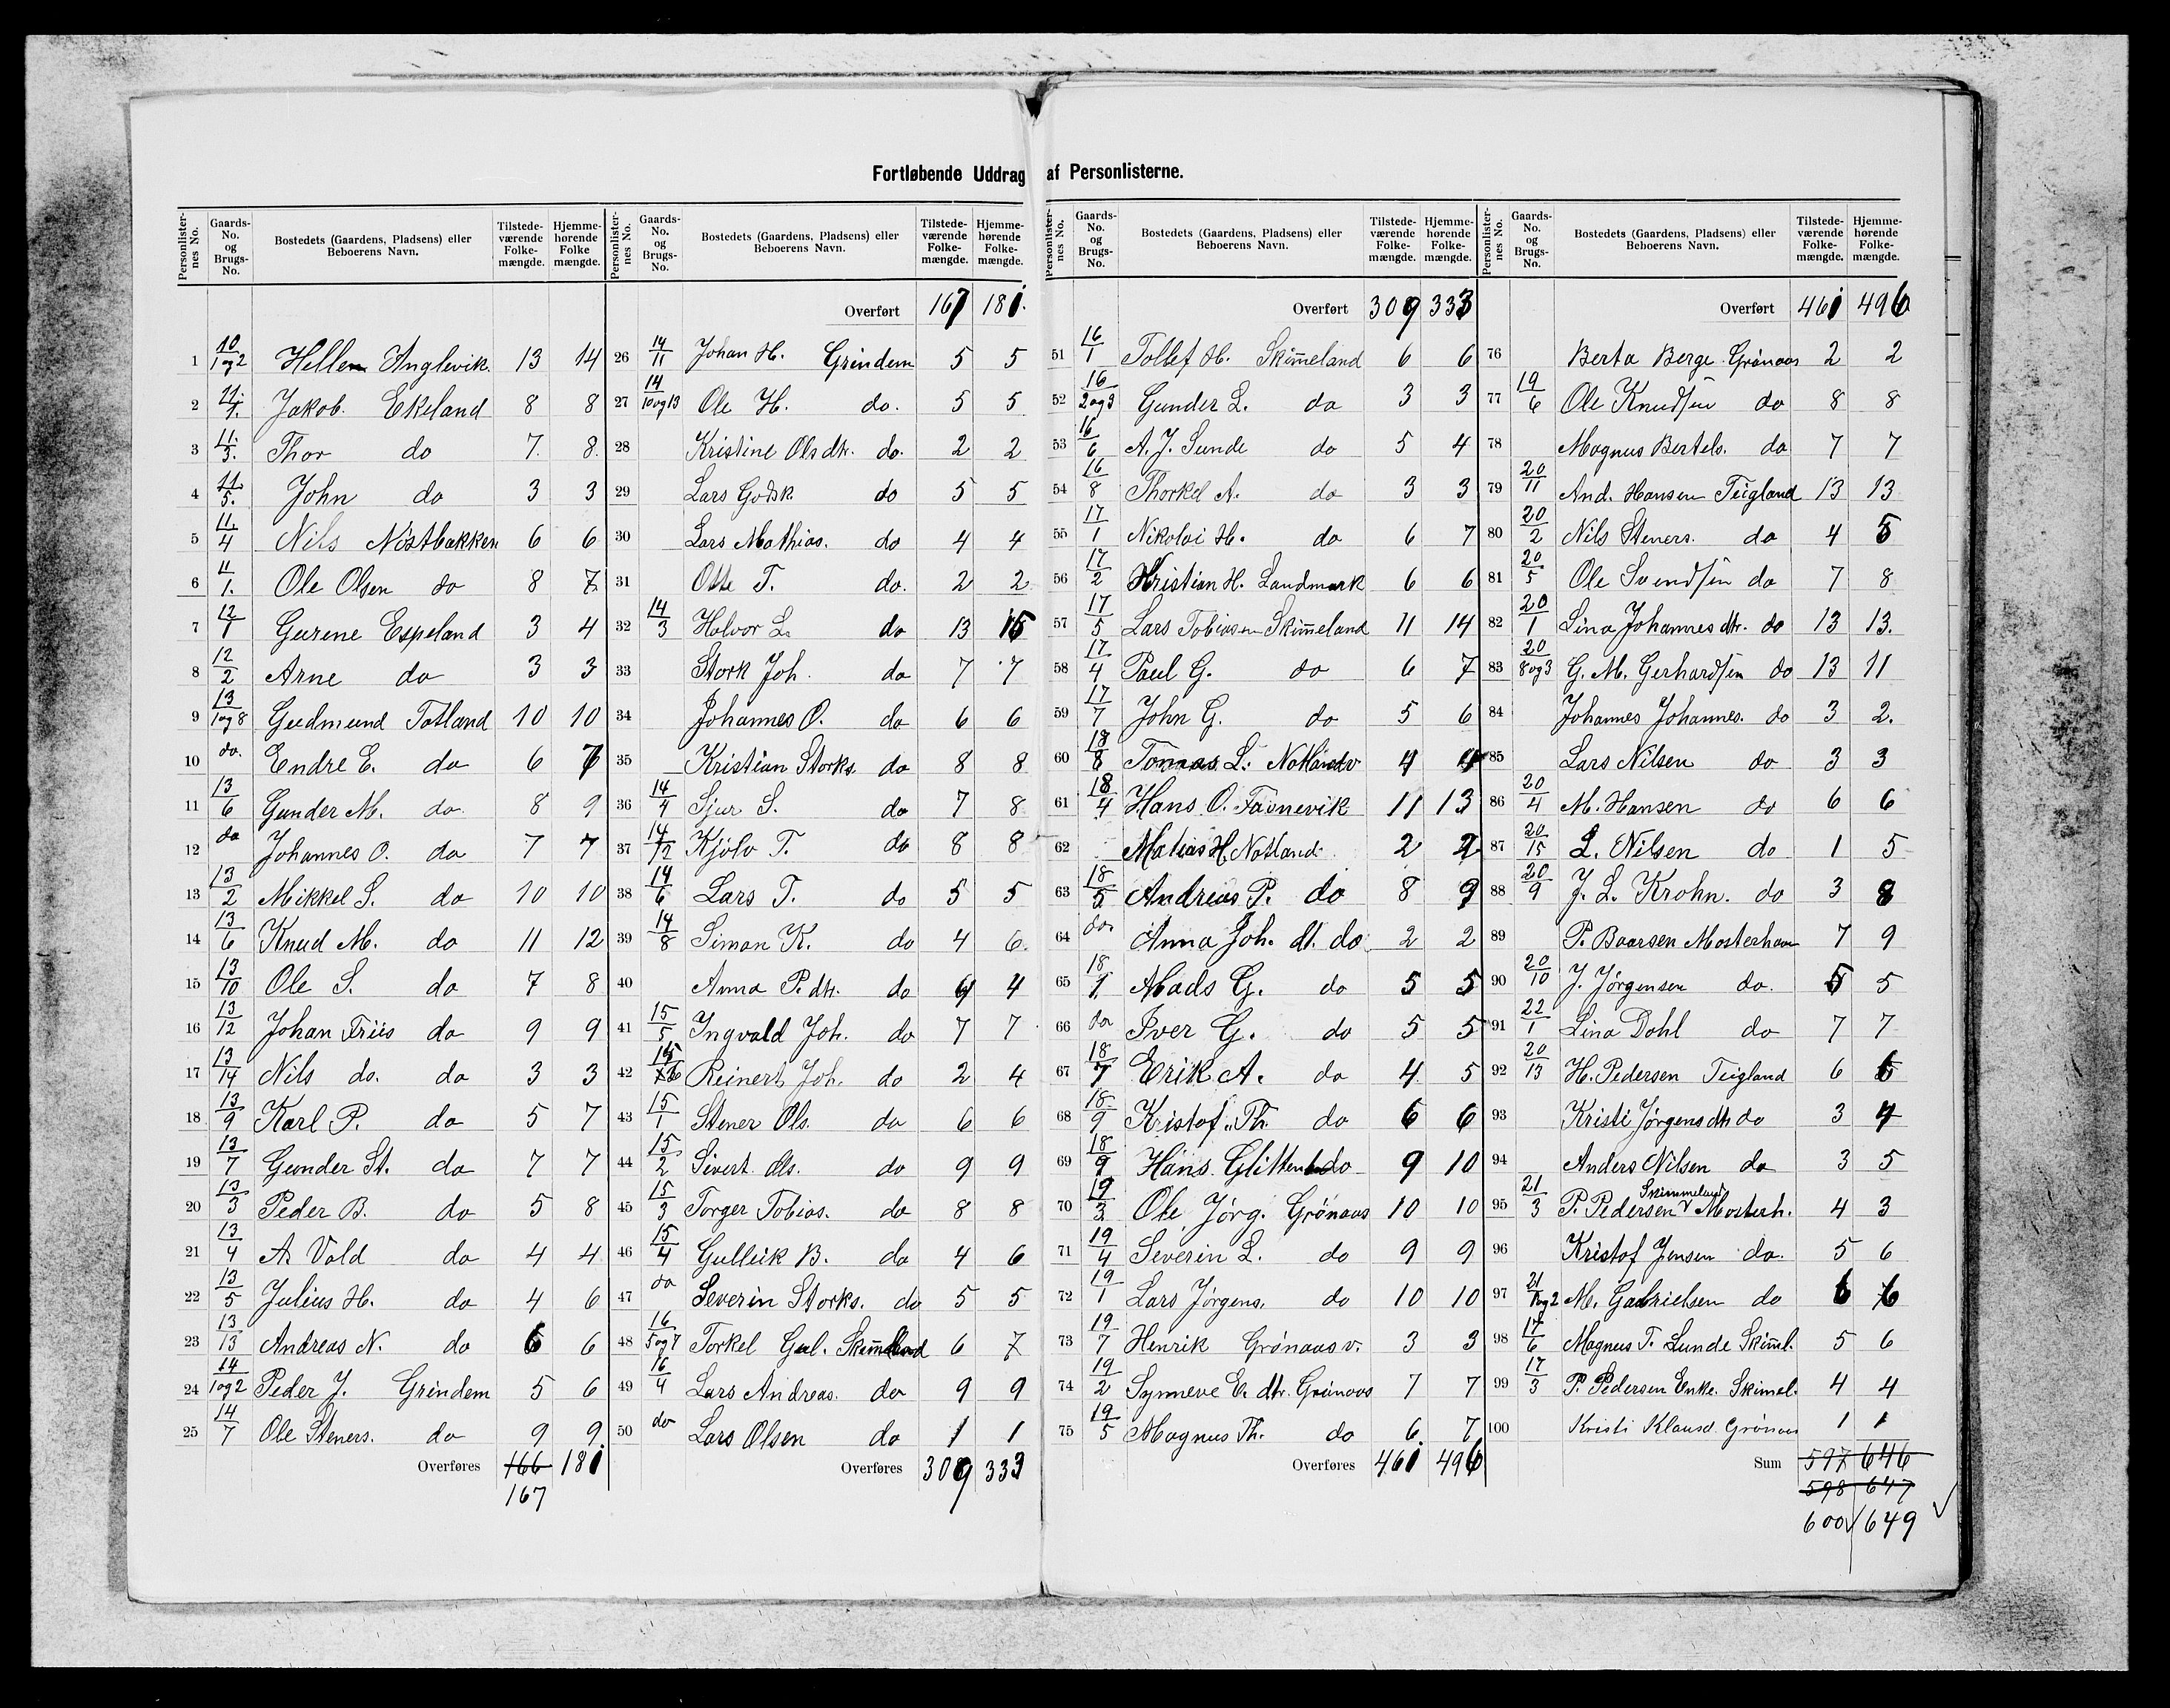 Fortløbende Uddrag af Personlisterne.
Personlisternes No. Gaards-No. og Brugs-No. Bostedets (Gaardens, Pladsens) eller Beboerens Navn. Tilstedeværende Folkemængde. Hjemmehørende Folkemængde.
1 10/1og2 Hellen Anglevik. 13 14
2 11./1. Jakob Ekeland 8 8
3 11./3. Thor do 7. 8.
4 11./5. John do 3 3
5 11./4 Nils Nistbakken 6 6
6 11/1. Ole Olsen do 8 7
7 12/1 Gurene Espeland 3 4
8 12/2 Arne do 3 3
9 13/1og8 Gudmund Totland 10 10
10 do. Endre E. do 6 7
11 13/6 Gunder M. do 8 9
12 do Johannes O. do 7 7
13 13/2 Mikkel S. do 10 10
14 13/6 Knud M. do 11 12
15 13/10 Ole S. do 7 8
16 13/12 Johan Friis do 9 9
17 13/14 Nils do. do 3 3
18 13/9 Karl P. do 5 7
19 13/7 Gunder St. do 7 7
20 13/3 Peder B. do 5 8
21 13/4 A. Vold do 4 4
22 13/5 Julius H. do 4 6
23 13/13 Andreas N. do 6 6
24 14/1og2 Peder J. Grindem 5 6
25 14/7 Ole Steners. do 9 9.
Overføres 166 181
167
Personlisternes No. Gaards-No. og Brugs-No. Bostedets (Gaardens, Pladsens) eller Beboerens Navn. Tilstedeværende Folkemængde. Hjemmehørende Folkemængde.
Overført 167 181.
26 14/11 Johan H. Grindem 5 5
27 14/10og13 Ole H. do. 5 5
28 Kristine Olsdtr. do. 2 2
29 Lars Godsk. do 5 5
30 Lars Mathias. do 4 4
31 Otte T. do. 2 2
32 14/3 Halvor L. do 13 15
33 Stork Joh. do 7 7
34 Johannes O. do 6 6
35 Kristian Storks. do 8 8
36 14/4 Sjur S. do 7 8
37 14/12 Kjølv T. do 8 8
38 14/6 Lars T. do 5 5
39 14/8 Simon K. do 4 6.
40 Anna P. dtr. do 4
41 15/5 Ingvald Joh. do 7 7
42 Reinert Joh. do 2 4
43 15/1 Stener Ols. do 6 6
44 15/2 Sivert Ols. do 9 9
45 15/3 Torger Tobias. do 8 8
46 15/4 Gulleik B. do 4 6
47 do Severin Storks. do 5 5
48 16/5og7 Torkel Gul. Skimmeland 6 7
49 16/4 Lars Andreas. do 9 9
50 do Lars Olsen do 1 1
Overføres 309 333
Personlisternes No. Gaards-No. og Brugs-No. Bostedets (Gaardens, Pladsens) eller Beboerens Navn. Tilstedeværende Folkemængde. Hjemmehørende Folkemængde.
Overført 309 333
51 16/1 Tollef H. Skim̄eland 6 6
52 16/2og3 Gunder L. do 3 3
53 16/6 A. J. Sunde do 5 4
54 16/8 Thorkel A. do 3 3
55 17/1 Nikolai H. do 6 7
56 17/2 Kristian H. Landmark 6 6
57 17/5 Lars Tobiasen Skim̄eland 11 14
58 17/4 Paul G. do 6 7
59 17/7 John G. do 5 6
60 18/8 Tomas L. 4 4
61 18/4 Hans O. Favnevik 11 13
62 Matias H. Notland 2 2
63 18/5 Andreas P. do 8 9
64 do. Anna Joh. dt. do 2 2
65 18/1 Mads G. do 5 5
66 do Iver G. do 5 5
67 18/7 Erik A. do 4 5
68 18/9 Kristof. Th. do 6 6
69 18/9 Hans 9 10
70 19/3 Ole Jørg. Grønaas 10 10
71 19/4 Severin L. do 9 9
72 19/1 Lars Jørgens. do 10 10
73 19/7 Henrik Grønaasv. 3 3
74 19/2 Synneve E. dtr. Grønaas 7 7
75 19/5 Magnus Th. do 6. 7
Overføres 461 496
Personlisternes No. Gaards-No. og Brugs-No. Bostedets (Gaardens, Pladsens) eller Beboerens Navn. Tilstedeværende Folkemængde. Hjemmehørende Folkemængde.
Overført 461 496
76 Berta Berge Grønaas 2 2
77 19/6 Ole Knudsen do 8 8
78 Magnus Bertels. do 7 7
79 20/11 And. Hansen Teigland 13 13
80 20/2 Nils Steners. do 4 5
81 20/5 Ole Svendsen do 7 8
82 20/1 Lina Johannesdtr. do 13 13.
83 20/8og3 G. M. Gerhardsen do 13 11
84 Johannes Johannes. do 3 2.
85 Lars Nilsen do 3 3
86 20/4 M. Hansen do 6 6
87 20/15 L. Nilsen do 1 5
88 20/9 J. L. Krohn. do 3 8
89 P. Baarsen Mosterhavn 7 9
90 20/10 J. Jørgensen do. 5 5
91 22/1 Lina Dahl do 7 7
92 20/13 H. Pedersen Teigland 6 6
93 Kristi Jørgensdtr do 3 4
94 Anders Nilsen do 3 5
95 21/3 P. Pedersen Skimmeland Mosterh. 4 3
96 Kristof Jensen do. 5 6
97 21/1og2 M. Gabrielsen do 6 6
98 17/6 Magnus T. Sunde Skim̄l. 5 6
99 17/3 P. Pedersen Enke. Skimel. 4 4
100 Kristi Klausd. Grønaas 1 1
Sum 597 646
598 647
600 649